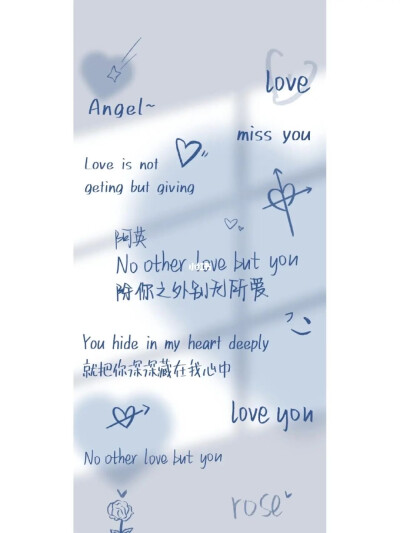 love
Angel~
miss you
Love is not
geting but giving
阿英
No other love but you
除你之外别无所爱
You hide in my heart deeply
就把你深深藏在我心中
love you
No other love but you
rose